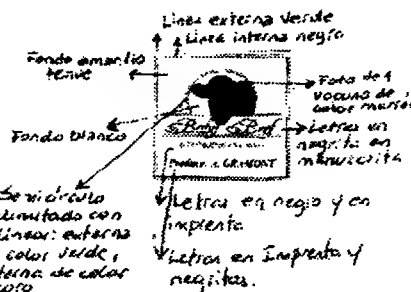 Linea externa verde
Linea interna negro
Fondo amarillo
tenue
Foto de 1
vacuno de
color marrón
Fondo blanco
Letras en
negrita en
manuscrita
Semicírculo
limitado con
lineas: externa
color verde,
terna de color
Letras en negro y en
imprenta
Letras en Imprenta y
negritas.